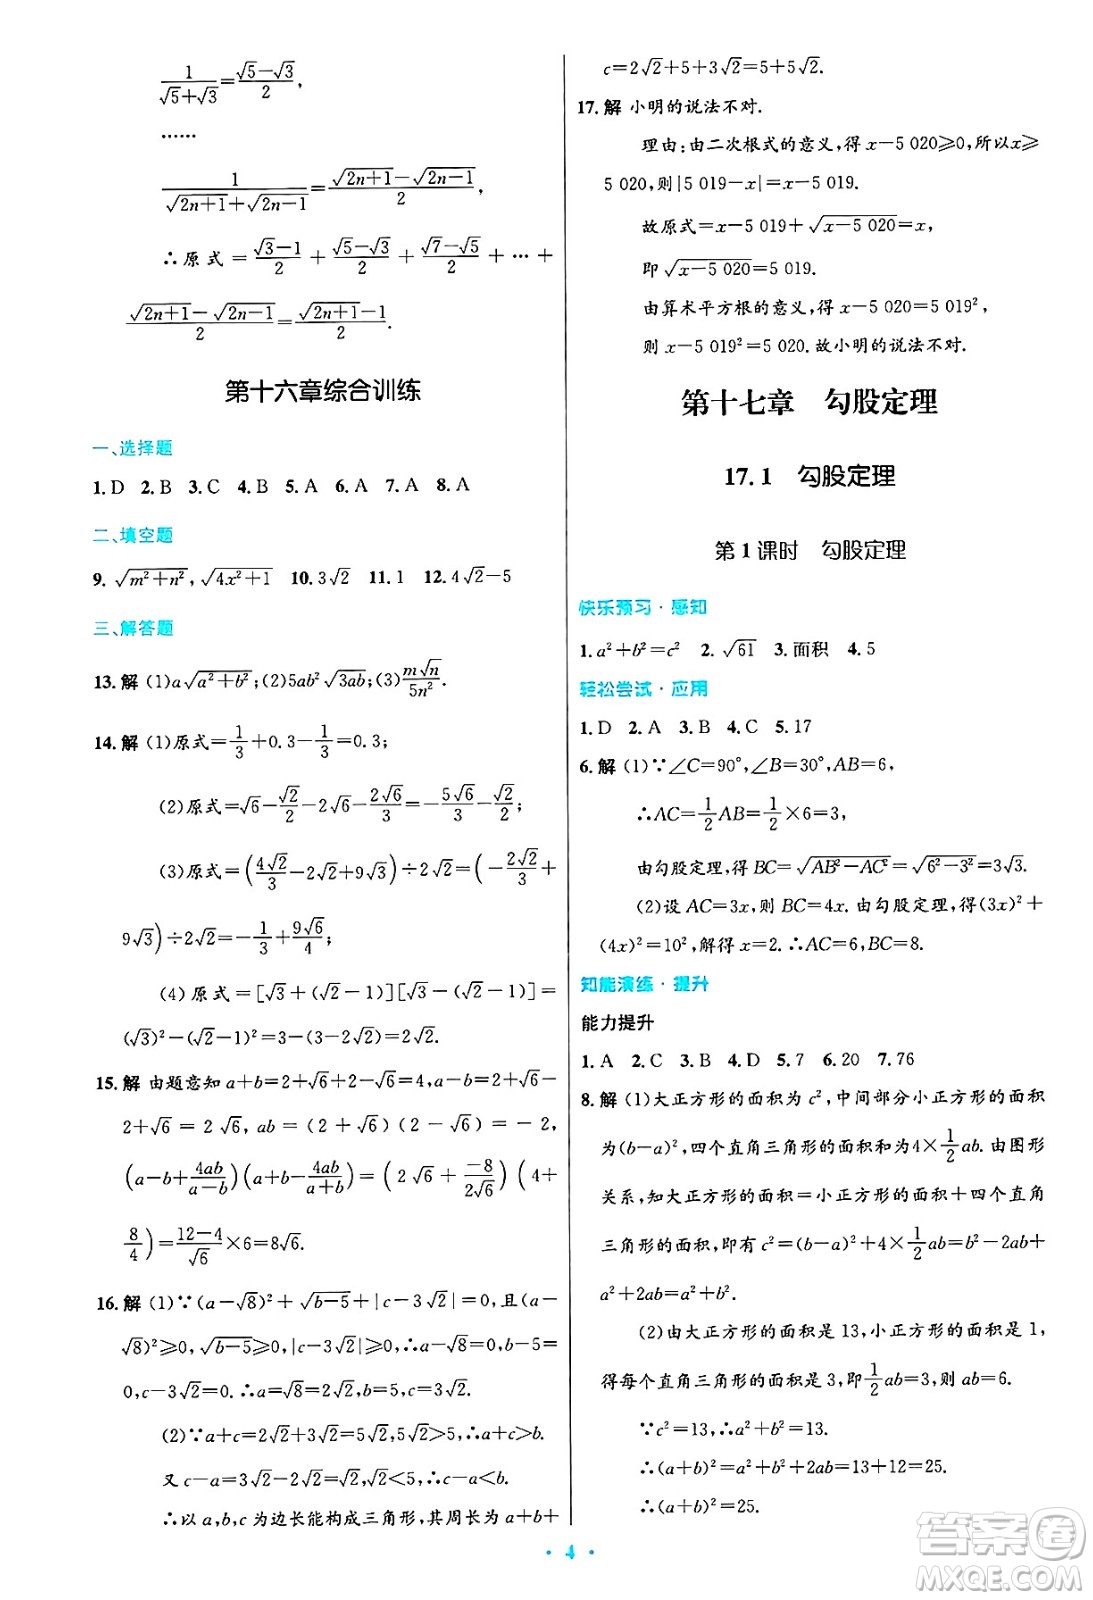 1/(√5+√3)=(√5−√3)/2,
……
1/(√(2n+1)+√(2n−1))=(√(2n+1)−√(2n−1))/2,
∴原式=(√3−1)/2+(√5−√3)/2+(√7−√5)/2+…+
(√(2n+1)−√(2n−1))/2=(√(2n+1)−1)/2.
第十六章综合训练
一、选择题
1.D 2.B 3.C 4.B 5.A 6.A 7.A 8.A
二、填空题
9.√(m²+n²),√(4x²+1) 10.3√2 11.1 12.4√2−5
三、解答题
13.解 (1)a√(a²+b²);(2)5ab²√(3ab);(3)m√n/5n².
14.解 (1)原式=1/3+0.3−1/3=0.3;
(2)原式=√6−√2/2−2√6−2√6/3=−5√6/3−√2/2;
(3)原式=(4√2/3−2√2+9√3)÷2√2=(−2√2/3+
9√3)÷2√2=−1/3+9√6/4;
(4)原式=[√3+(√2−1)][√3−(√2−1)]=
(√3)²−(√2−1)²=3−(3−2√2)=2√2.
15.解 由题意知a+b=2+√6+2−√6=4,a−b=2+√6−
2+√6=2√6,ab=(2+√6)(2−√6)=−2,
(a−b+4ab/(a−b))(a+b−4ab/(a+b))=(2√6+−8/2√6)(4+
8/4)=(12−4)/√6×6=8√6.
16.解 (1)∵(a−√8)²+√(b−5)+|c−3√2|=0,且(a−
√8)²≥0,√(b−5)≥0,|c−3√2|≥0,∴a−√8=0,b−5=
0,c−3√2=0.∴a=√8=2√2,b=5,c=3√2.
(2)∵a+c=2√2+3√2=5√2,5√2>5,∴a+c>b.
又c−a=3√2−2√2=√2,√2<5,∴c−a<b.
∴以a,b,c为边长能构成三角形,其周长为a+b+
c=2√2+5+3√2=5+5√2.
17.解 小明的说法不对.
理由:由二次根式的意义,得x−5 020≥0,所以x≥
5 020,则|5 019−x|=x−5 019.
故原式=x−5 019+√(x−5 020)=x,
即√(x−5 020)=5 019.
由算术平方根的意义,得x−5 020=5 019²,
则x−5 019²=5 020.故小明的说法不对.
第十七章 勾股定理
17.1 勾股定理
第1课时 勾股定理
快乐预习·感知
1.a²+b²=c² 2.√61 3.面积 4.5
轻松尝试·应用
1.D 2.A 3.B 4.C 5.17
6.解 (1)∵∠C=90°,∠B=30°,AB=6,
∴AC=1/2AB=1/2×6=3,
由勾股定理,得BC=√(AB²−AC²)=√(6²−3²)=3√3.
(2)设AC=3x,则BC=4x.由勾股定理,得(3x)²+
(4x)²=10²,解得x=2.∴AC=6,BC=8.
知能演练·提升
能力提升
1.A 2.C 3.B 4.D 5.7 6.20 7.76
8.解 (1)大正方形的面积为c²,中间部分小正方形的面积
为(b−a)²,四个直角三角形的面积和为4×1/2ab.由图形
关系,知大正方形的面积=小正方形的面积+四个直角
三角形的面积,即有c²=(b−a)²+4×1/2ab=b²−2ab+
a²+2ab=a²+b².
(2)由大正方形的面积是13,小正方形的面积是1,
得每个直角三角形的面积是3,即1/2ab=3,则ab=6.
∵c²=13,∴a²+b²=13.
∴(a+b)²=a²+b²+2ab=13+12=25.
∴(a+b)²=25.
·4·
答案卷
MXQE.COM